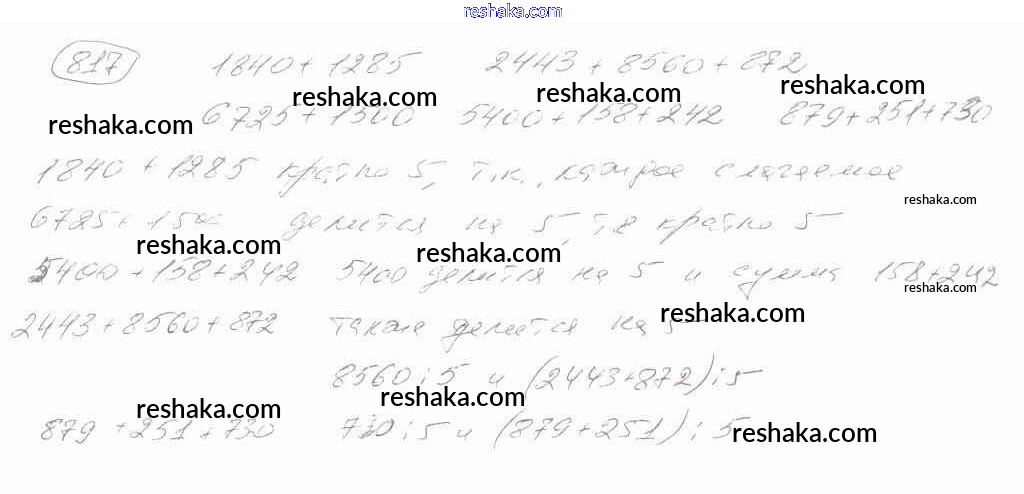 reshaka.com
817 1840 + 1285 2443 + 8560 + 872
reshaka.com reshaka.com reshaka.com
6725 + 1500 5400 + 158 + 242 879 + 251 + 730
reshaka.com
1840 + 1285 кратно 5, т.к. каждое слагаемое
reshaka.com
6725 + 1500 делится на 5, т.е кратно 5
reshaka.com reshaka.com
5400 + 158 + 242 5400 делится на 5 и сумма 158 + 242
reshaka.com
2443 + 8560 + 872 также делится на 5
reshaka.com
8560 : 5 и (2443 + 872) : 5
reshaka.com reshaka.com
879 + 251 + 730 730 : 5 и (879 + 251) : 5
reshaka.com